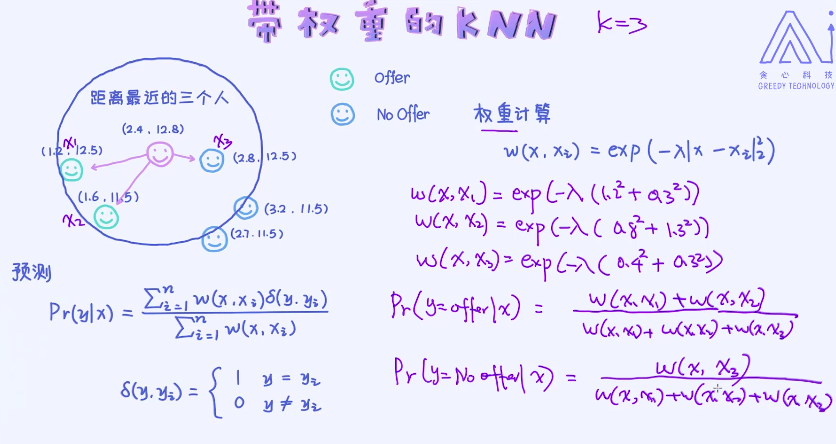 带权重的KNN K=3
贪心科技
GREEDY TECHNOLOGY
距离最近的三个人
(2.4, 12.8)
x1
(1.2, 12.5)
x3
(2.8, 12.5)
(1.6, 11.5)
x2
(3.2, 11.5)
(2.7, 11.5)
Offer
No Offer
权重计算
w(x, xi) = exp(-λ|x - xi|²₂)
w(x,x₁) = exp(-λ(1.2²+0.3²))
w(x,x₂) = exp(-λ(0.8²+1.3²))
w(x,x₃) = exp(-λ(0.4²+0.3²))
预测
Pr(y|x) = ∑ⁿᵢ₌₁ w(x,xi)δ(y,yi) / ∑ⁿᵢ₌₁ w(x,xi)
δ(y,yi) = { 1 y = yi
0 y ≠ yi
Pr(y=offer|x) = w(x,x₁)+w(x,x₂) / w(x,x₁)+w(x,x₂)+w(x,x₃)
Pr(y=No offer|x) = w(x,x₃) / w(x,x₁)+w(x,x₂)+w(x,x₃)